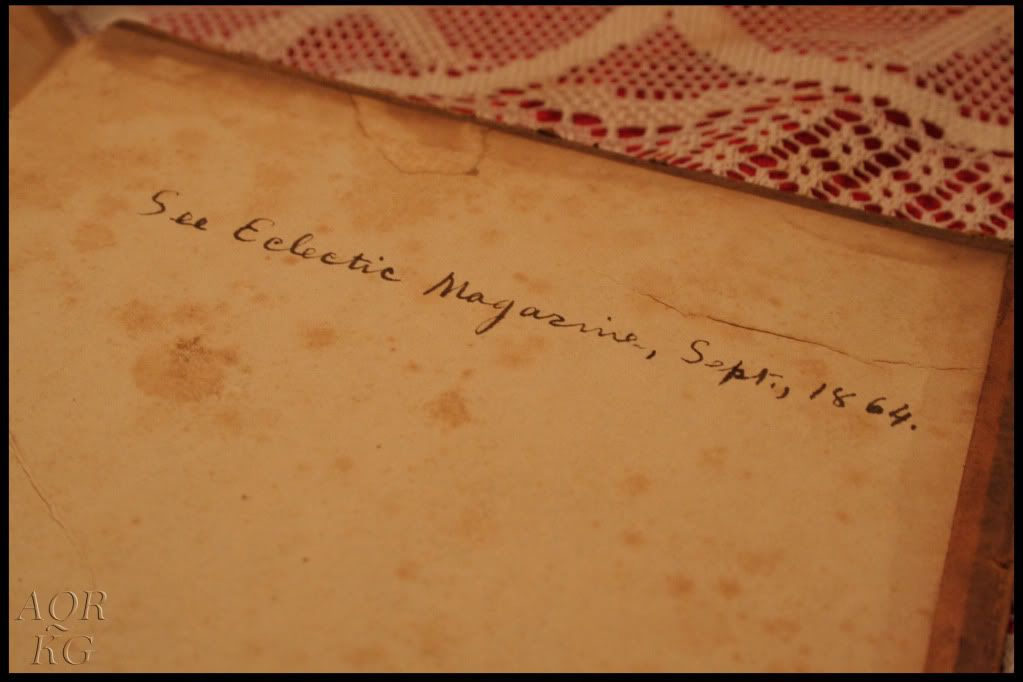 See Eclectic Magazine, Sept., 1864.
AQR
KG